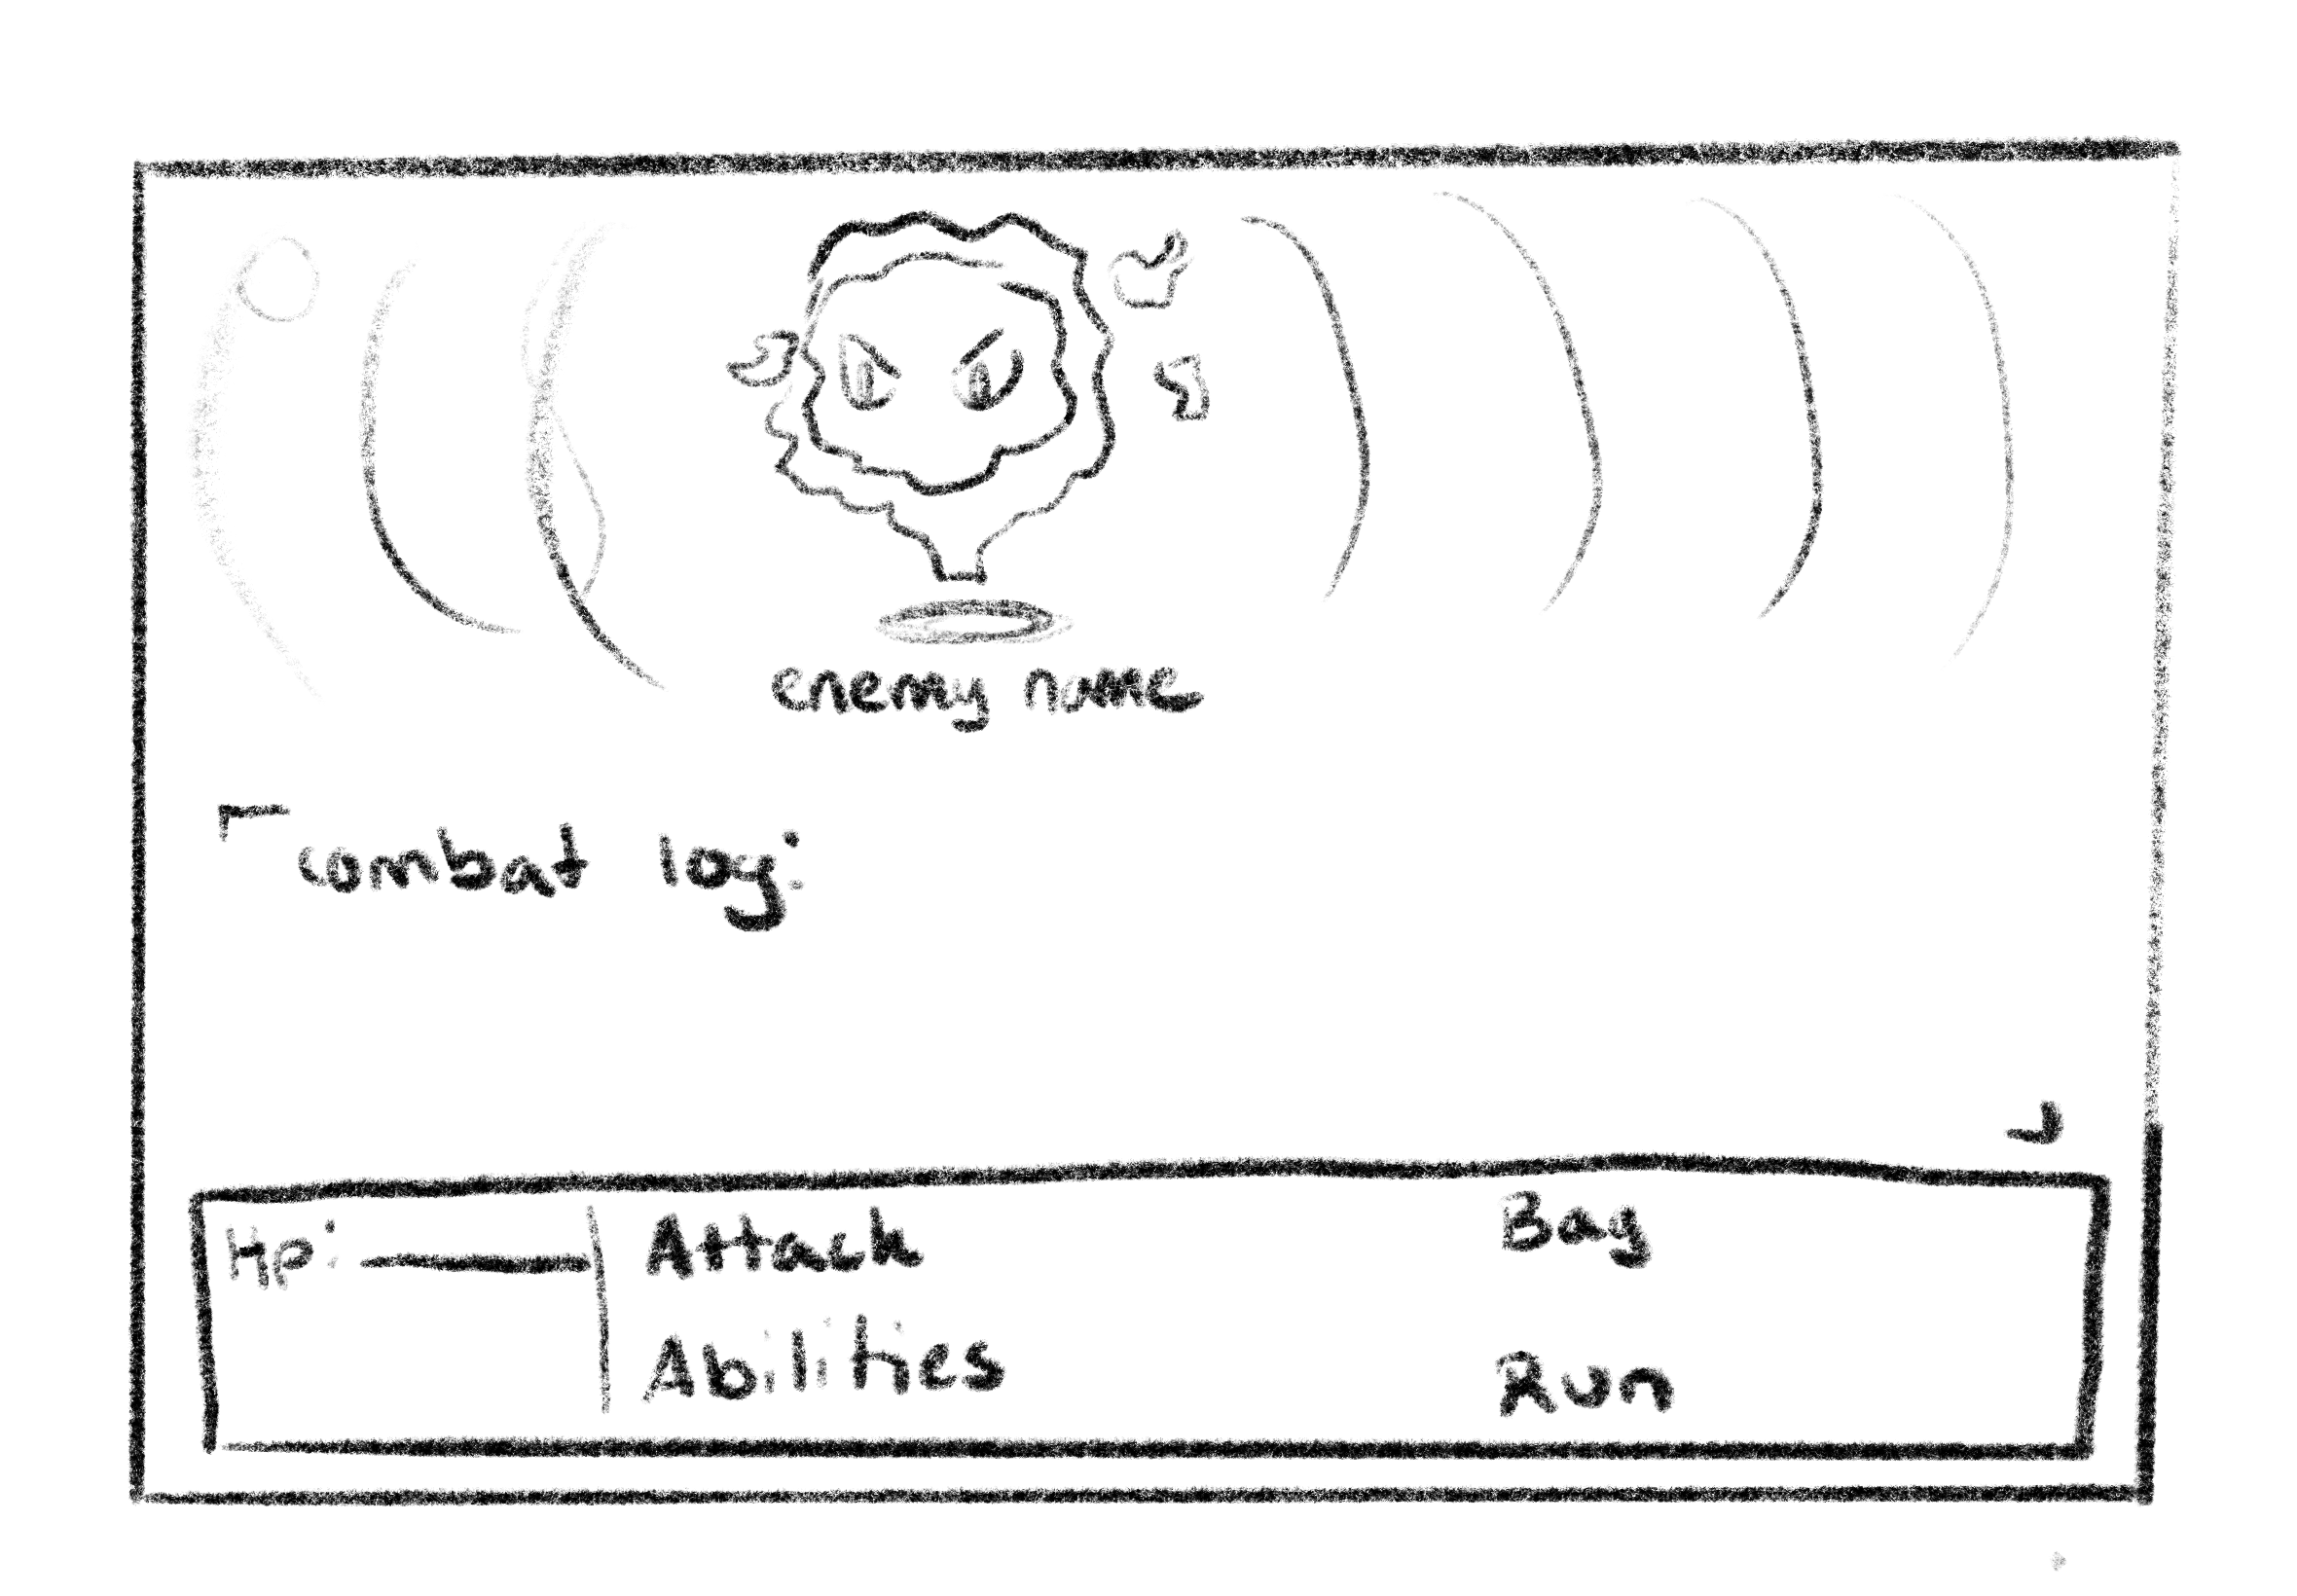 enemy name
combat log:
Hp:
Attack
Bag
Abilities
Run